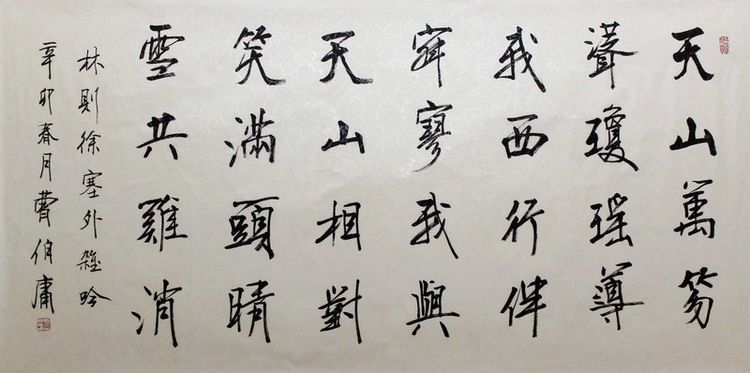 天山萬笏
聳瓊瑶導
我西行伴
寂寥我與
天山相對
笑滿頭晴
雪共難消
林則徐塞外雜吟
辛卯春月曹伯庸